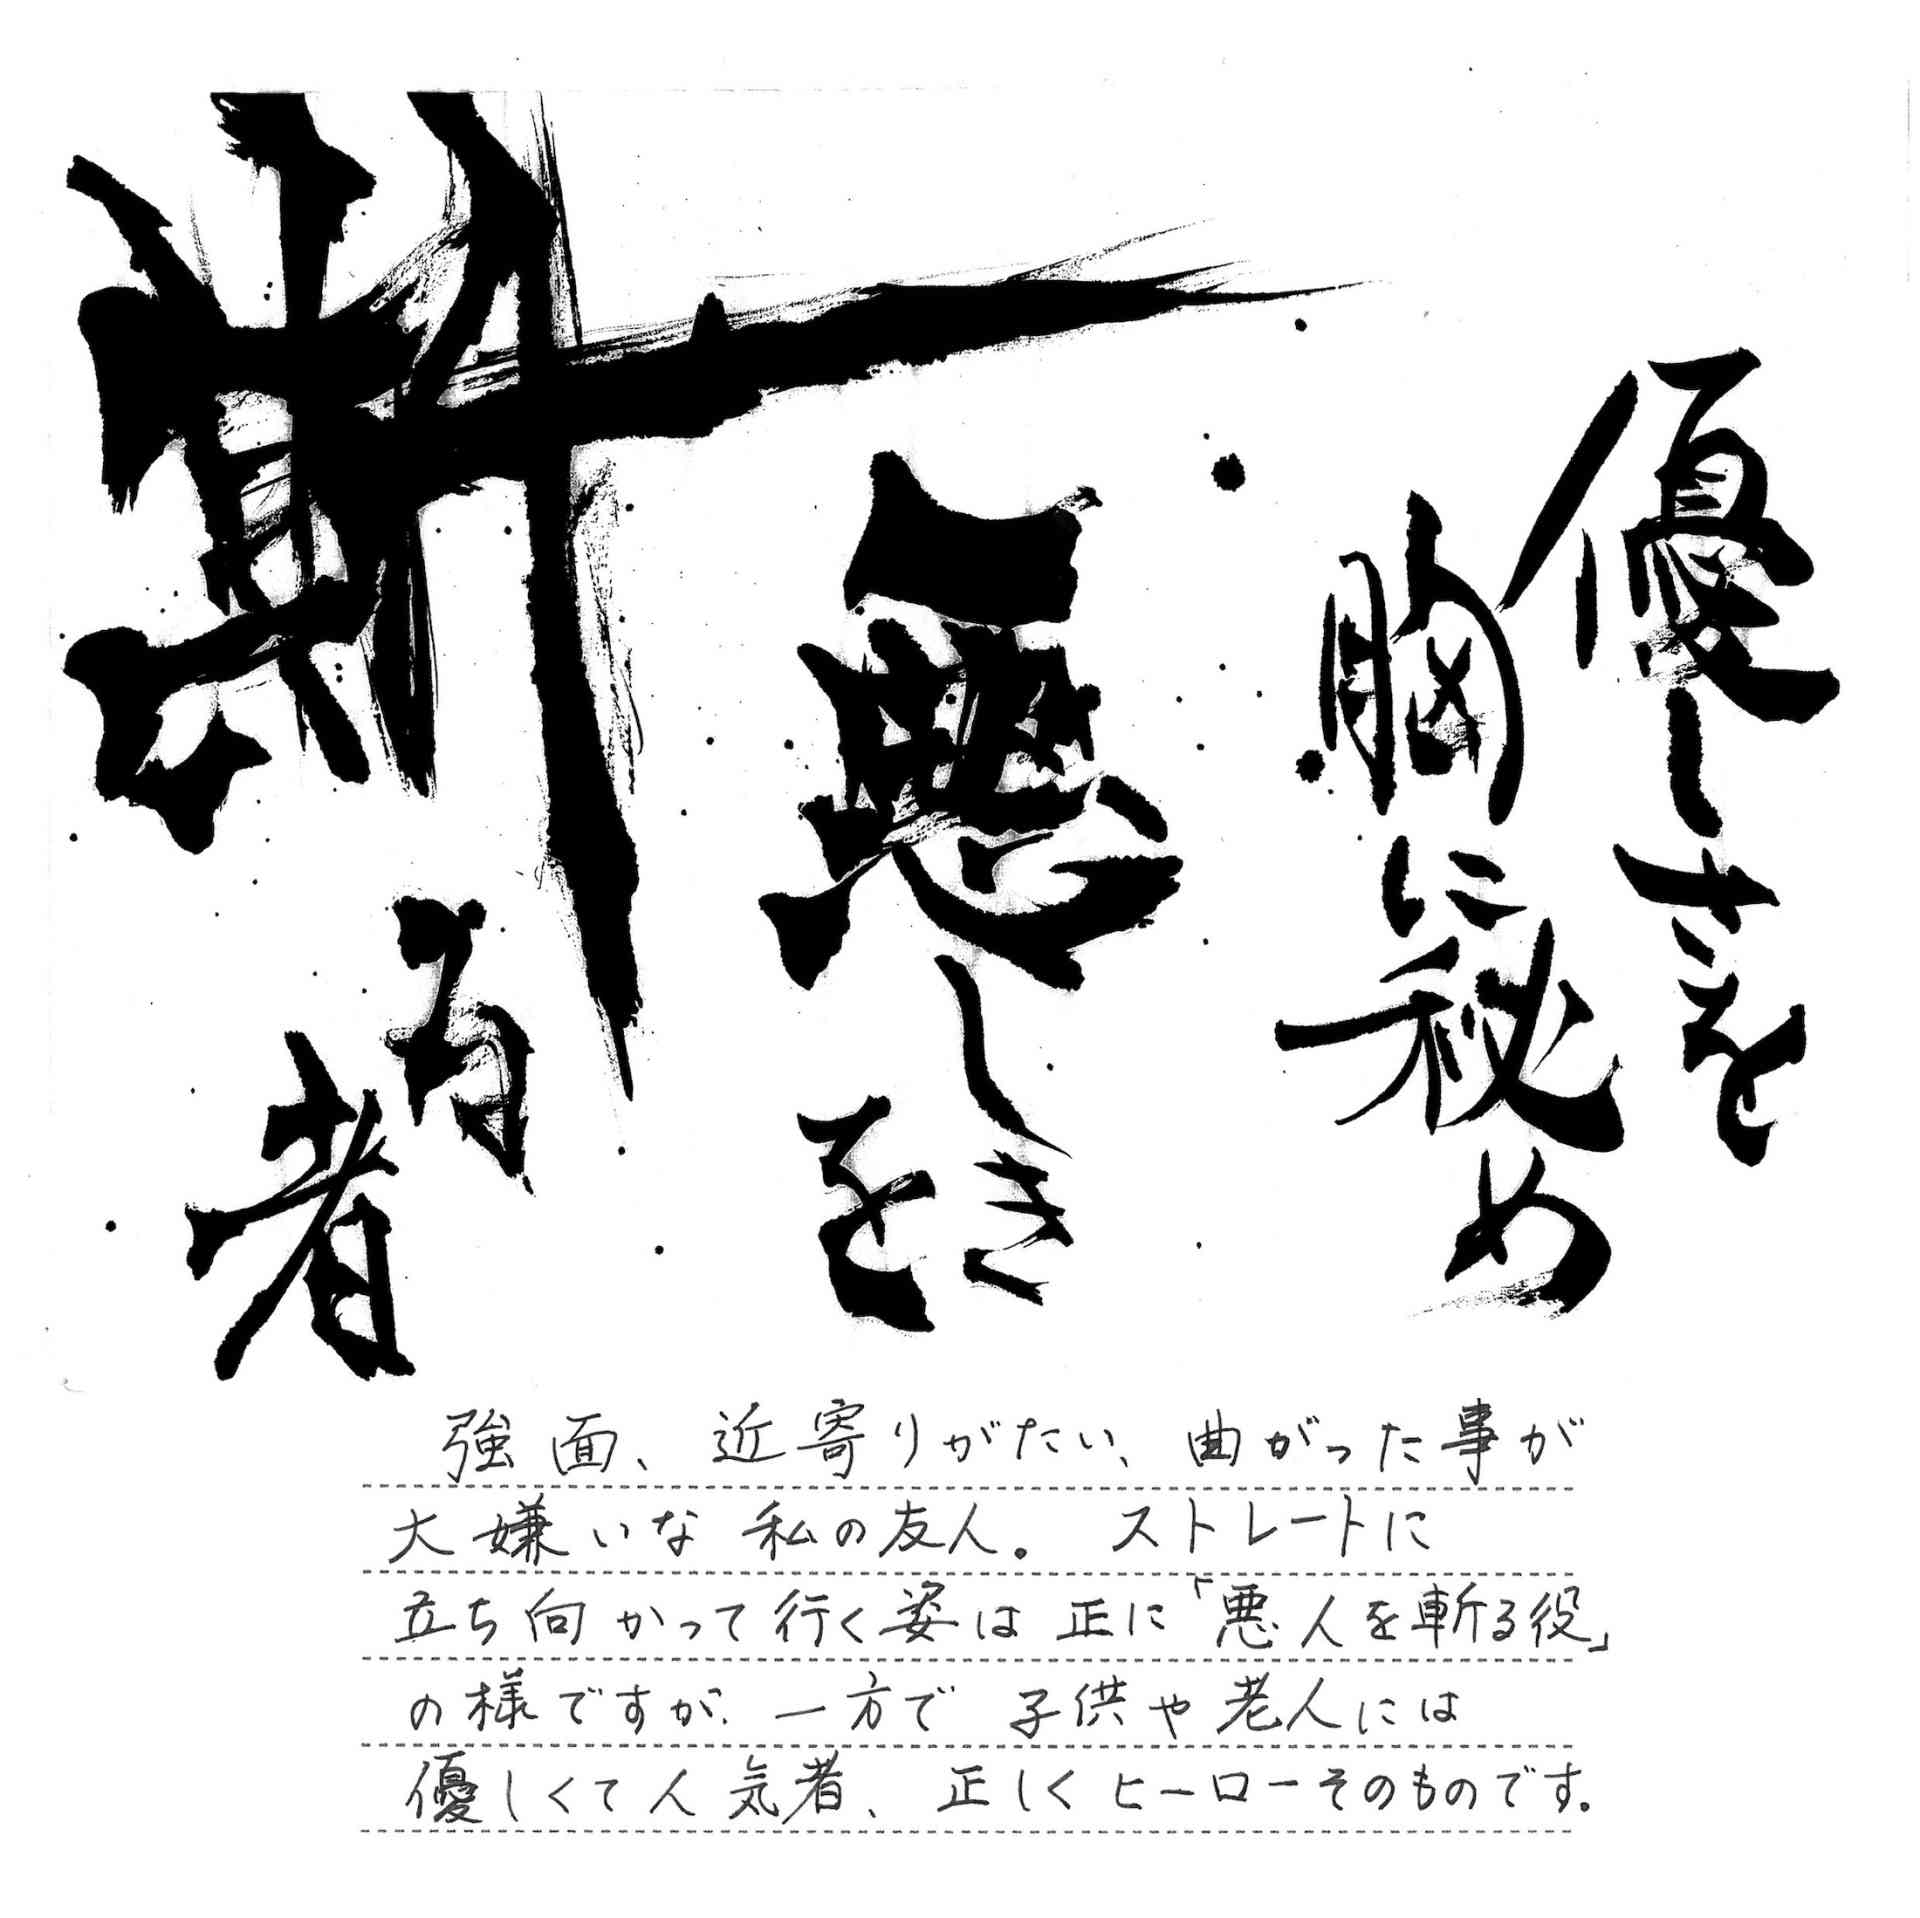 優しさを
胸に秘め
悪しき
を
斬る
者
強面、近寄りがたい、曲がった事が
大嫌いな私の友人。ストレートに
立ち向かって行く姿は正に「悪人を斬る役」
の様ですが、一方で子供や老人には
優しくて人気者、正しくヒーローそのものです。